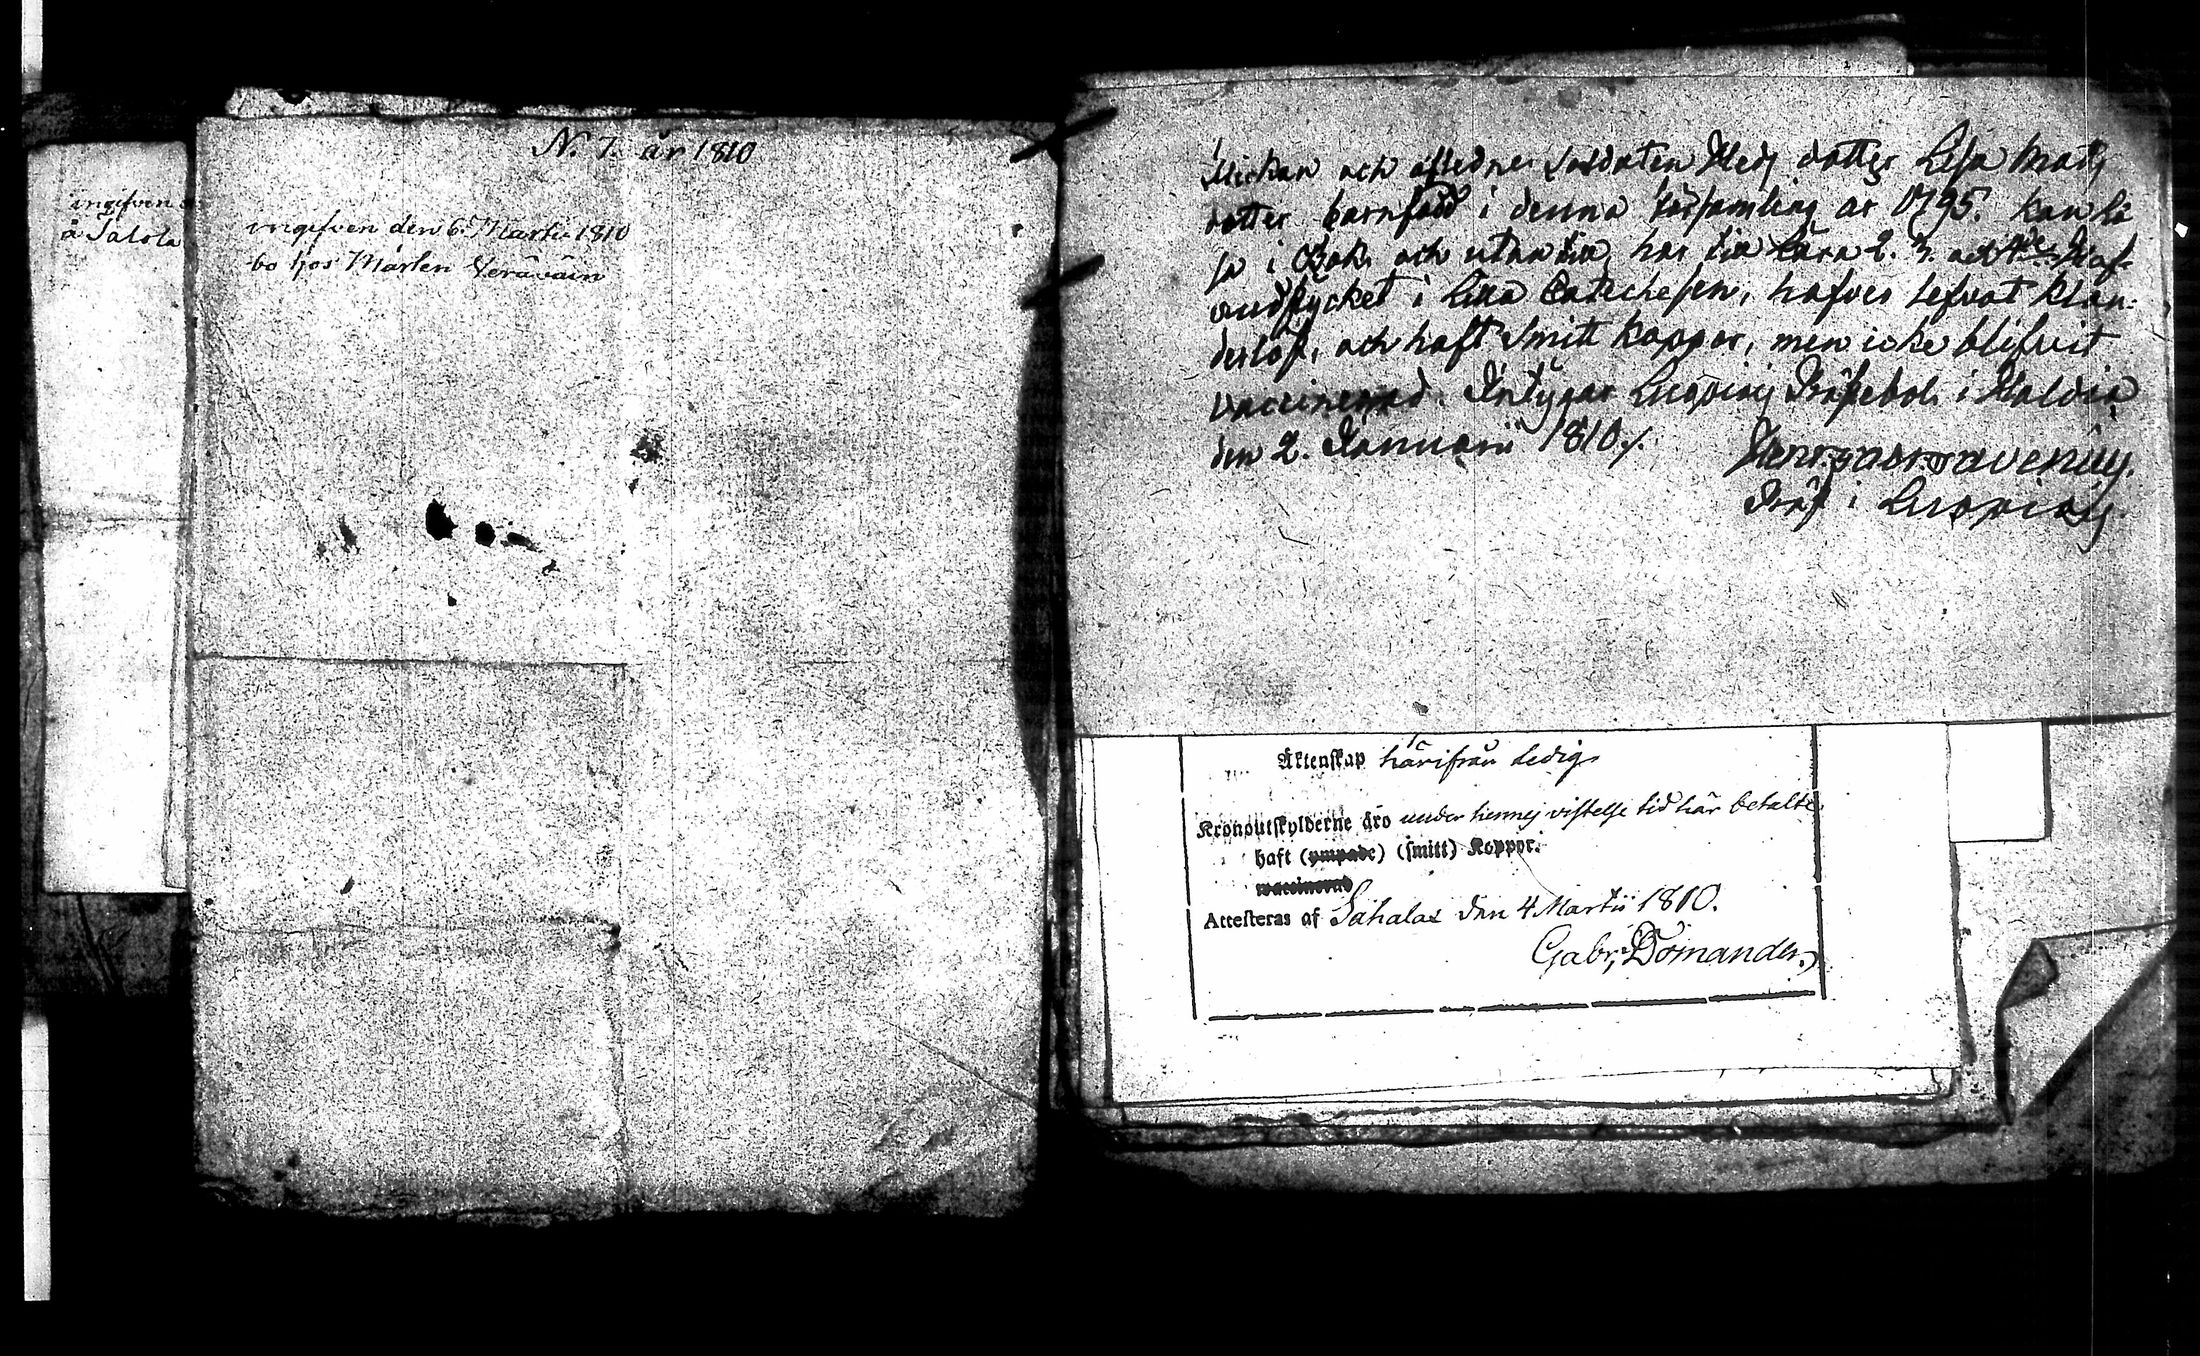 N. 7. år 1810
ingifven
å Talola
ingifven den 6. Martii 1810
bo hos Mårten Verävain
Flickan och aflednes Soldaten Hedz dotter Lisa Mats
dotter barnfödd i denna församling år 1795. kan lä
sa i Bok, och utantill har till Lära 2. 3. och 4de Huf-
vudstycket i Lilla Catechesen, hafver lefvat klan-
derlöst, och haft Smitt koppor, men icke blifvit
vaccinerad. Intygar Luopiois i Haldia
den 2. Januarii 1810.
i Luopiois.
Äktenskap härifrån ledig.
Kronoutskylderne äro under hennes vistelse tid här betalte.
haft (ympade) (smitt) Koppor.
vaccinerad
Attesteras af Sahalax den 4 Martii 1810.
Gabr. Domander.